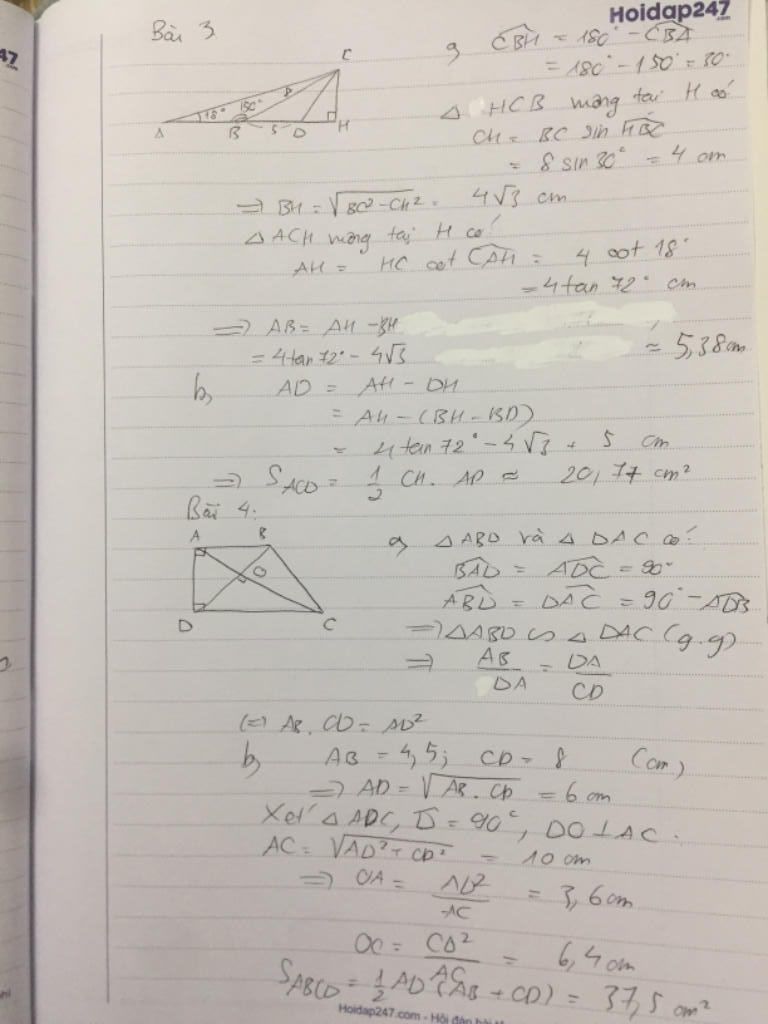 Hoidap247.com
Bài 3
C
18° 150° 8
A B 5 D H
a, CBH = 180° - CBA
= 180° - 150° = 30°
Δ HCB vuông tại H có
CH = BC sin HBC
= 8 sin 30° = 4 cm
=> BH = √BC² - CH² = 4√3 cm
Δ ACH vuông tại H có:
AH = HC cot CAH = 4 cot 18°
= 4 tan 72° cm
=> AB = AH - BH
= 4 tan 72° - 4√3 ≈ 5,38 cm
b, AD = AH - DH
= AH - (BH - BD)
= 4 tan 72° - 4√3 + 5 cm
=> S ACD = 1/2 CH. AD ≈ 20,77 cm²
Bài 4:
A B
O
D C
a, Δ ABD và Δ DAC có:
BAD = ADC = 90°
ABD = DAC = 90° - ADB
=> Δ ABD ∽ Δ DAC (g.g)
=> AB/DA = DA/CD
(=) AB. CD = AD²
b, AB = 4,5; CD = 8 (cm)
=> AD = √AB. CD = 6 cm
Xét Δ ADC, D = 90°, DO ⊥ AC.
AC = √AD² + CD² = 10 cm
=> OA = AD²/AC = 3,6 cm
OC = CD²/AC = 6,4 cm
S ABCD = 1/2 AD (AB + CD) = 37,5 cm²